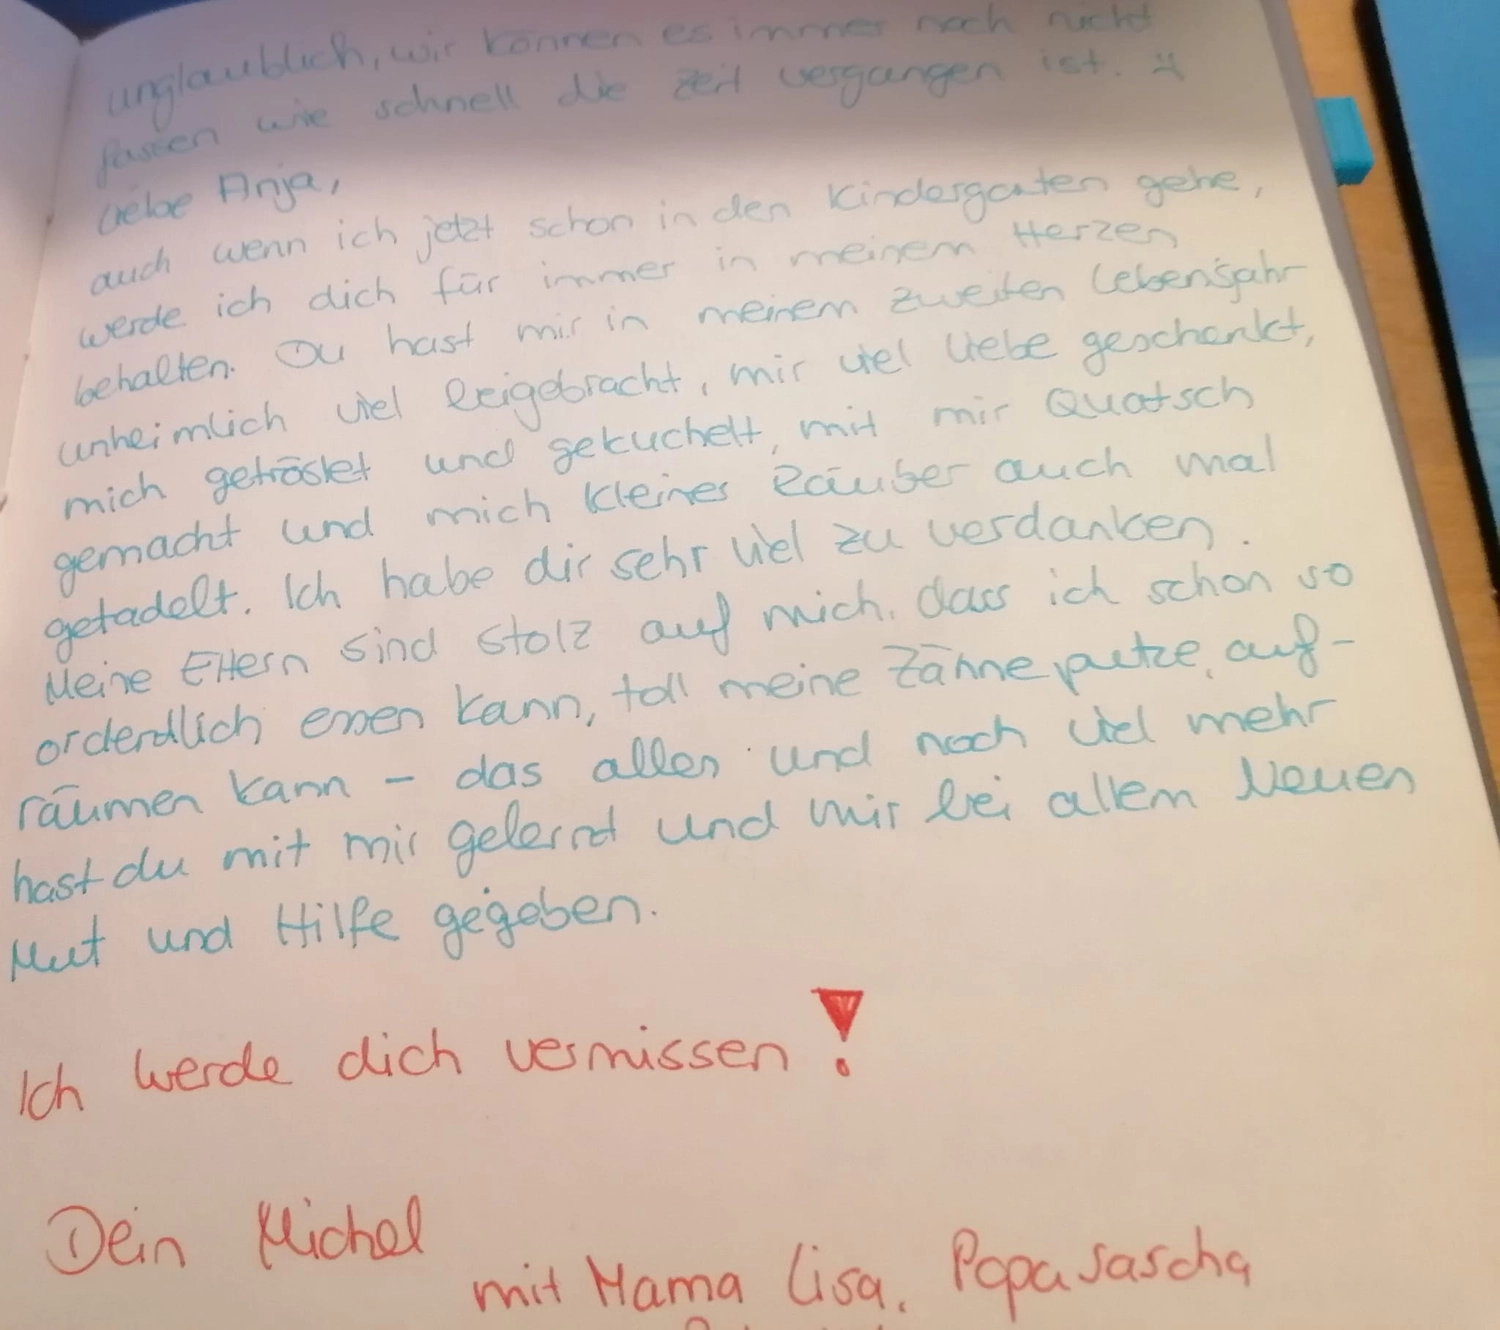 unglaublich, wir können es immer noch nicht
fassen wie schnell die Zeit vergangen ist. :(
Liebe Anja,
auch wenn ich jetzt schon in den Kindergarten gehe,
werde ich dich für immer in meinem Herzen
behalten. Du hast mir in meinem zweiten Lebensjahr
unheimlich viel beigebracht, mir viel Liebe geschenkt,
mich getröstet und gekuchelt, mit mir Quatsch
gemacht und mich kleines Räuber auch mal
getadelt. Ich habe dir sehr viel zu verdanken.
Meine Eltern sind stolz auf mich, dass ich schon so
orderdlich essen kann, toll meine Zähne putze, auf-
räumen kann - das alles und noch viel mehr
hast du mit mir gelernt und mir bei allem Neuen
Mut und Hilfe gegeben.
Ich werde dich vermissen!
Dein Michel
mit Mama Lisa, Papa Sascha